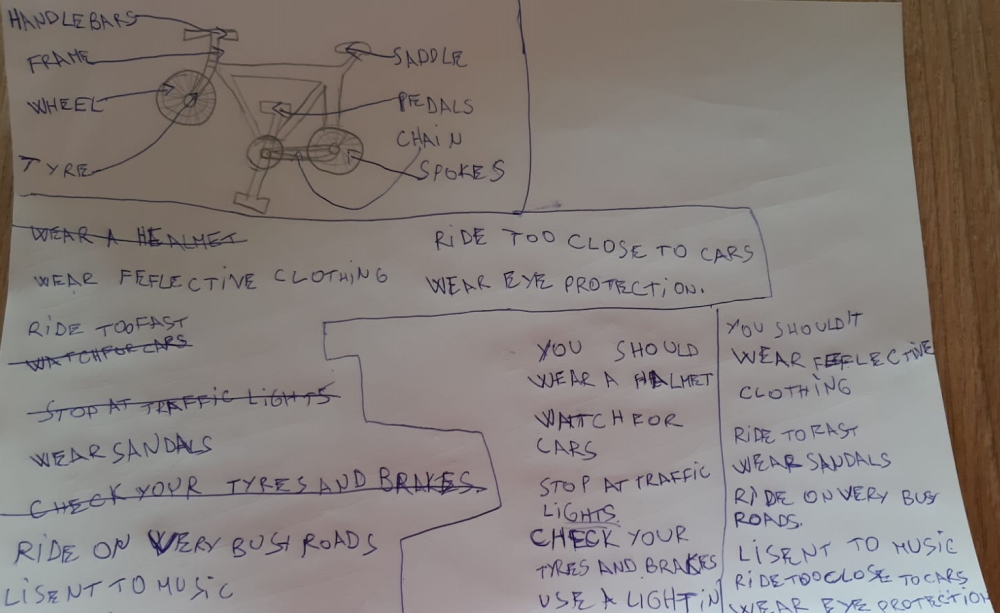 HANDLEBARS
FRAME
WHEEL
TYRE
SADDLE
PEDALS
CHAIN
SPOKES
WEAR A HEALMET
WEAR FEFLECTIVE CLOTHING
RIDE TOO FAST
WATCH FOR CARS
STOP AT TRAFFIC LIGHTS
WEAR SANDALS
CHECK YOUR TYRES AND BRAKES.
RIDE ON VERY BUSY ROADS
LISENT TO MUSIC
RIDE TOO CLOSE TO CARS
WEAR EYE PROTECTION.
YOU SHOULD
WEAR A HALMET
WATCH FOR
CARS
STOP AT TRAFFIC
LIGHTS.
CHECK YOUR
TYRES AND BRAKES
USE A LIGHT IN
YOU SHOULD'T
WEAR FEFLECTIVE
CLOTHING
RIDE TO FAST
WEAR SANDALS
RIDE ON VERY BUSY
ROADS.
LISENT TO MUSIC
RIDE TOO CLOSE TO CARS
WEAR EYE PROTECTION